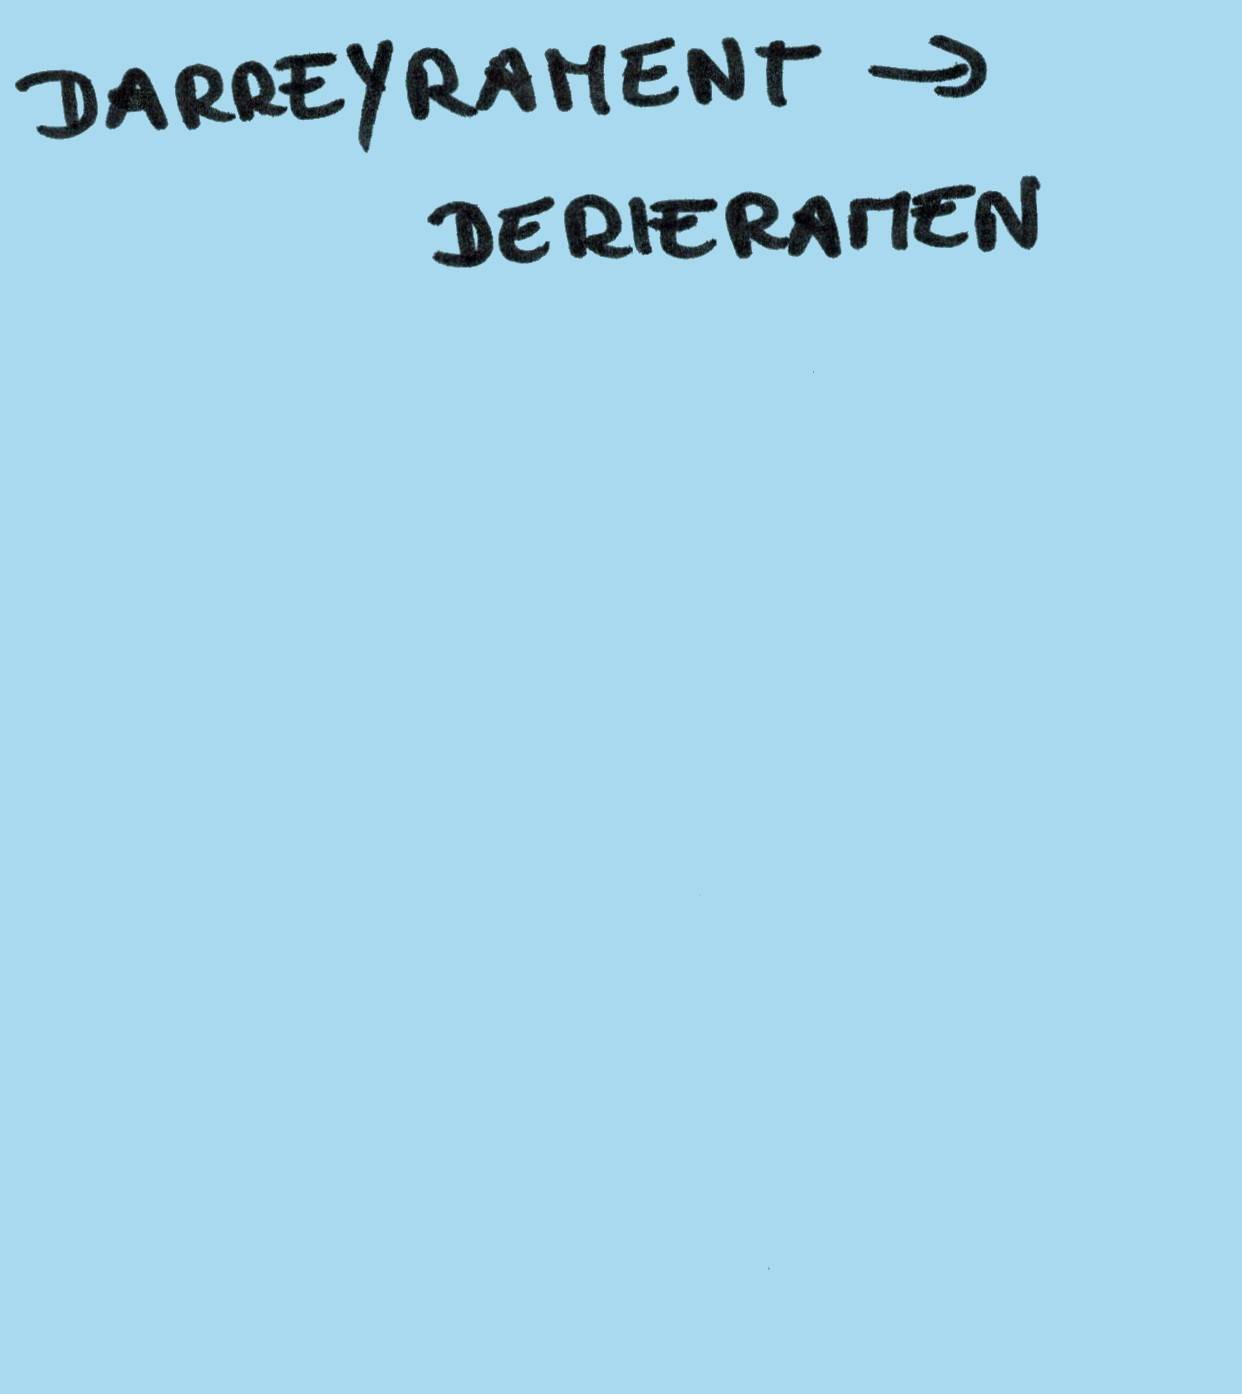 DARREYRAMENT →
DERIERAMEN